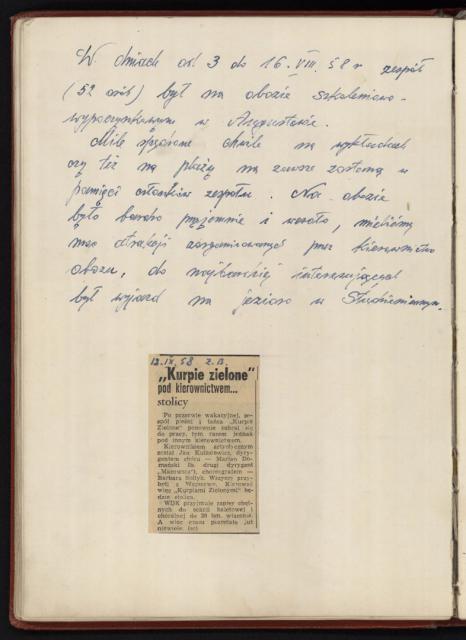 W dniach od 3 do 16. VIII. 58 r zespół
(52 osób) był na obozie szkoleniowo-
wypoczynkowym w Augustowie.
Mile spędzone chwile na wykładach
czy też na plaży na zawsze zostaną w
pamięci członków zespołu. Na obozie
było bardzo przyjemnie i wesoło, mieliśmy
moc atrakcji zorganizowanych przez kierownictwo
obozu, do najbardziej interesujących
był wyjazd na jezioro w Studzienicznym.
12.IX.58
„Kurpie zielone"
pod kierownictwem...
stolicy
Po przerwie wakacyjnej, ze-
spół pieśni i tańca „Kurpie
Zielone" ponownie zabrał się
do pracy, tym razem jednak
pod innym kierownictwem.
Kierownikiem artystycznym
został Jan Kulikowicz, dyry-
gentem chóru — Marian Do-
mański (b. drugi dyrygent
„Mazowsza"), choreografem —
Barbara Sołtyk. Wszyscy przy-
byli z Warszawy. Kierować
więc „Kurpiami Zielonymi" bę-
dzie stolica.
WDK przyjmuje zapisy chęt-
nych do sekcji baletowej i
chóralnej do 20 bm. włącznie.
A więc czasu pozostało już
niewiele.